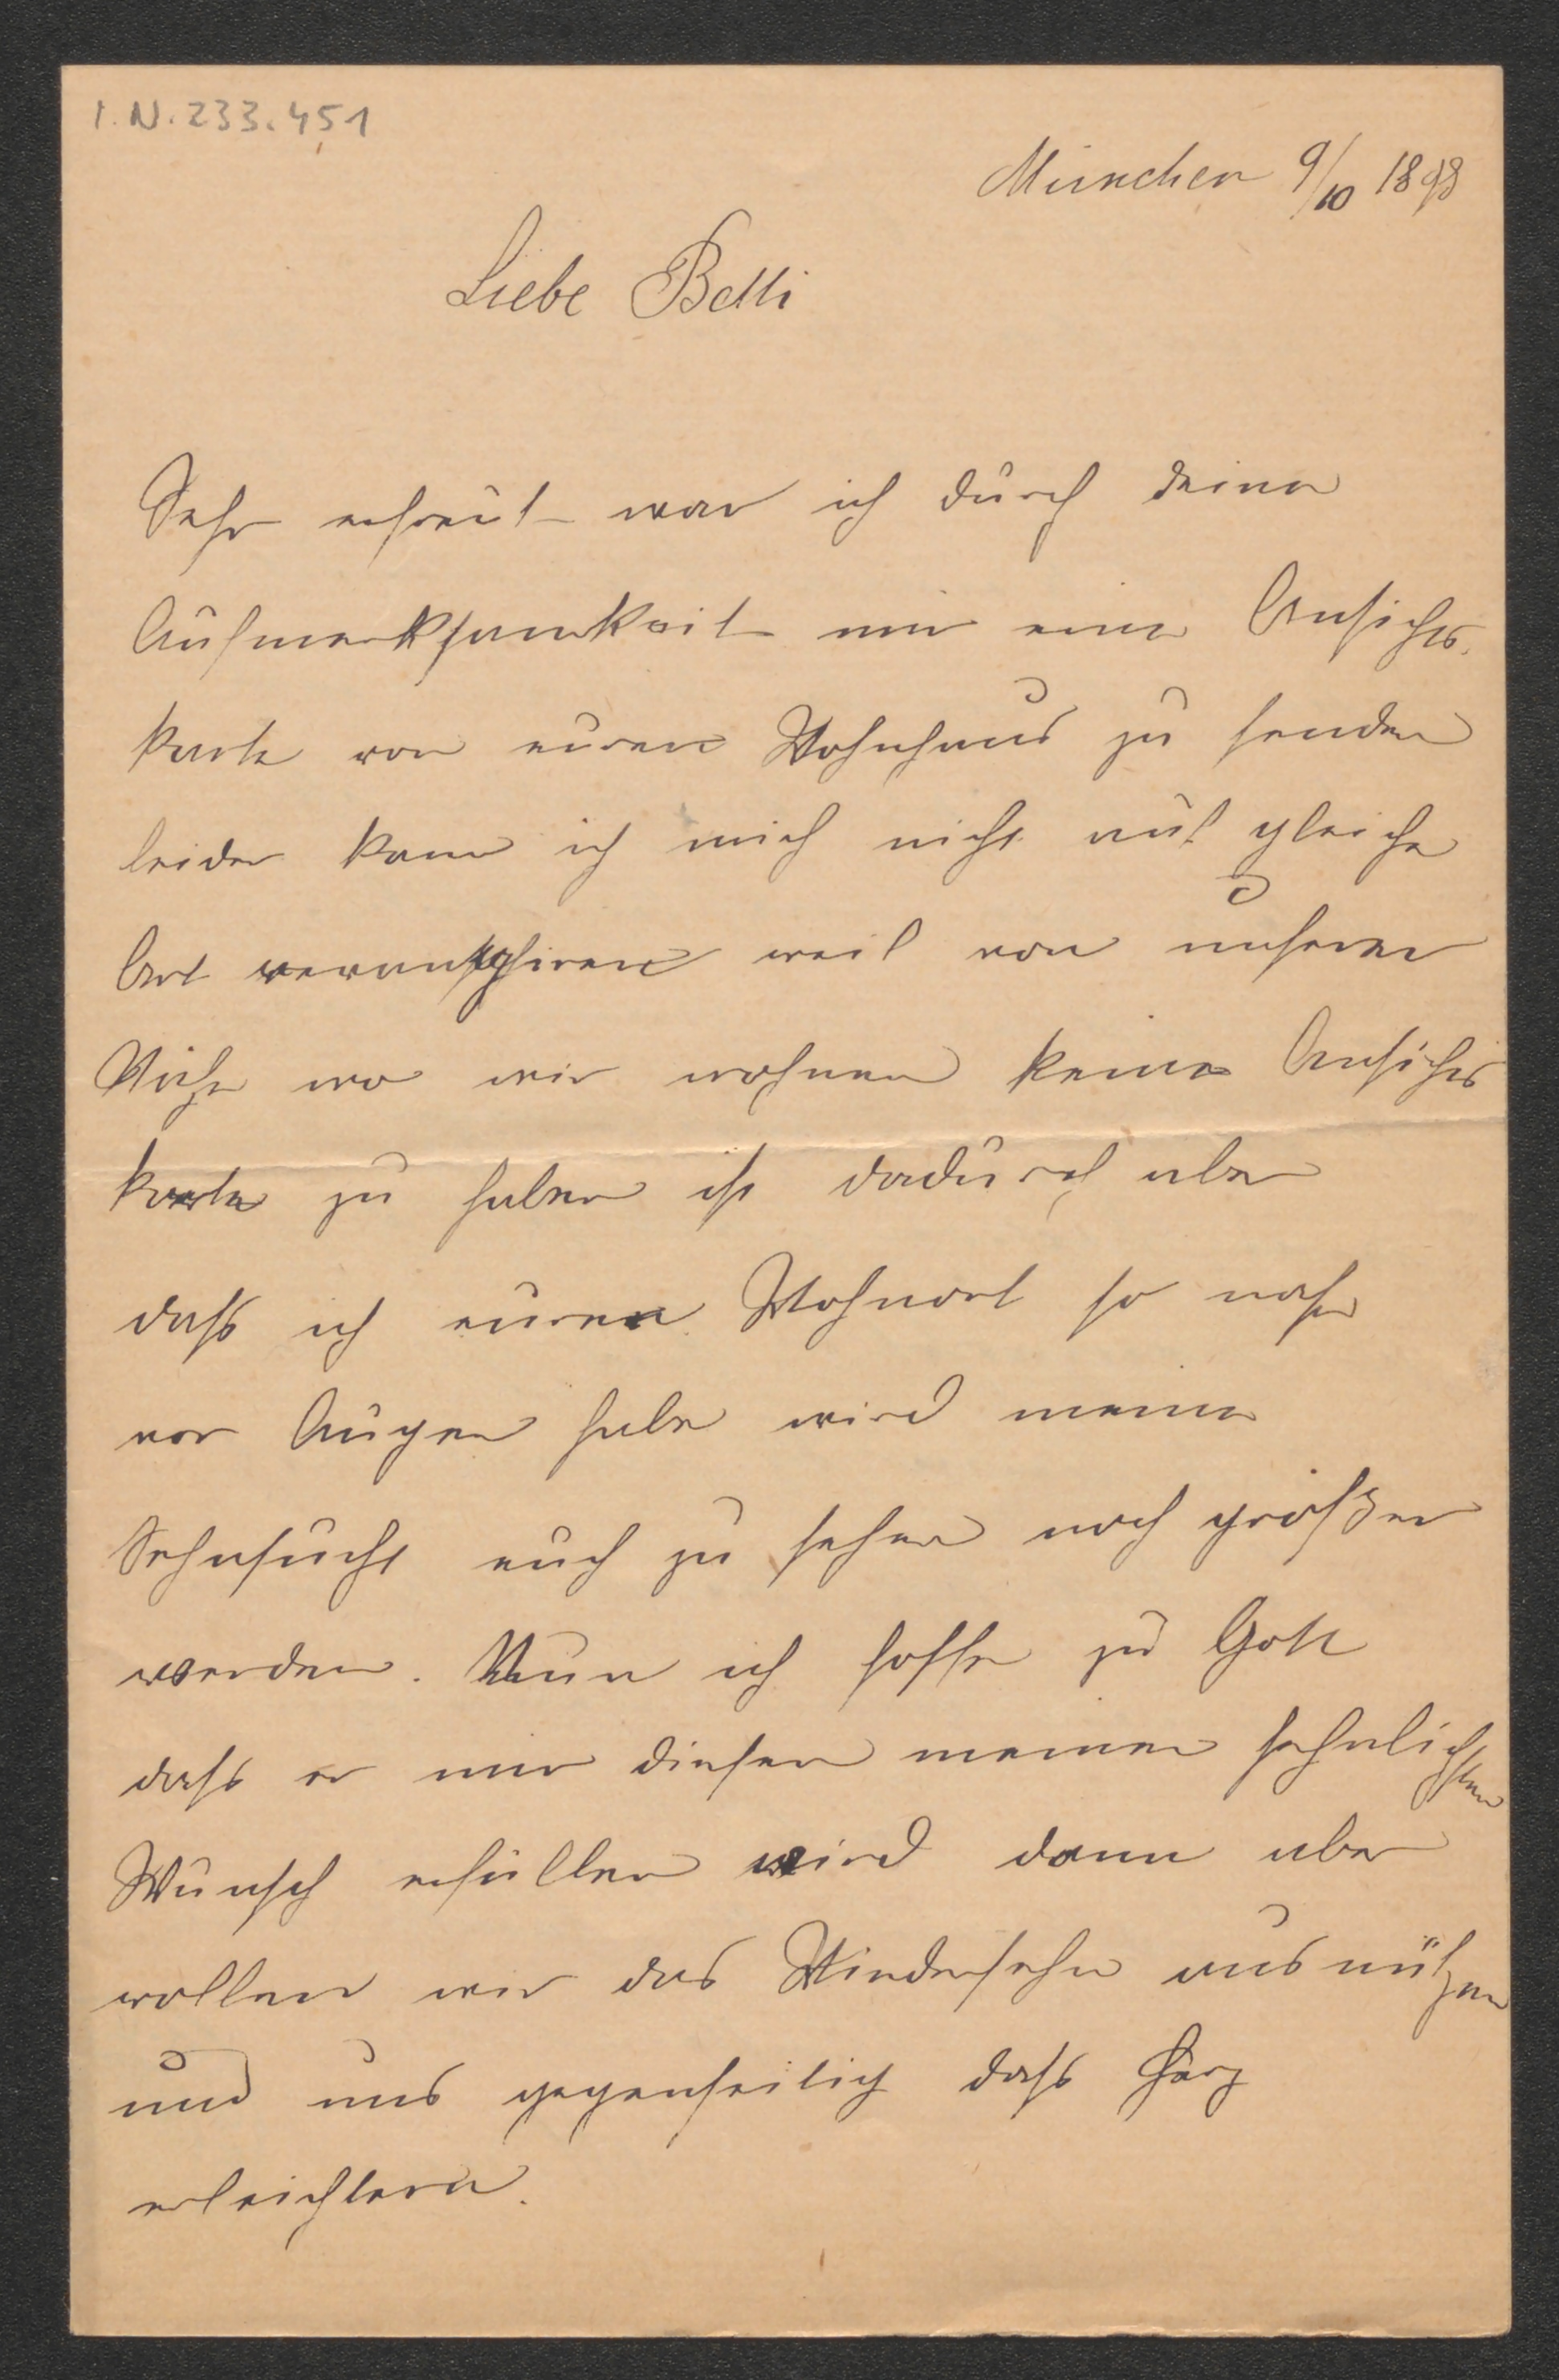 I.N. 233.451
München 9/10 1898
Liebe Betti
Sehr erfreut war ich durch deine
Aufmerksamkeit mir eine Ansichts
karte von euren Wohnhaus zu senden
leider kann ich mich nicht auf gleiche
Art weil von unserer
Nähe wo wir wohnen keine Ansichts
karte zu haben ist dadurch aber
dass ich euren Wohnort so nahe
vor Augen habe wird meine
Sehnsucht euch zu sehen noch größer
werden. Nun ich hoffe zu Gott
dass er mir diesen meinen sehnlichsten
Wunsch erfüllen wird dann aber
wollen wir das Wiedersehn ausnützen
und uns gegenseitig dass Herz
erleichtern.